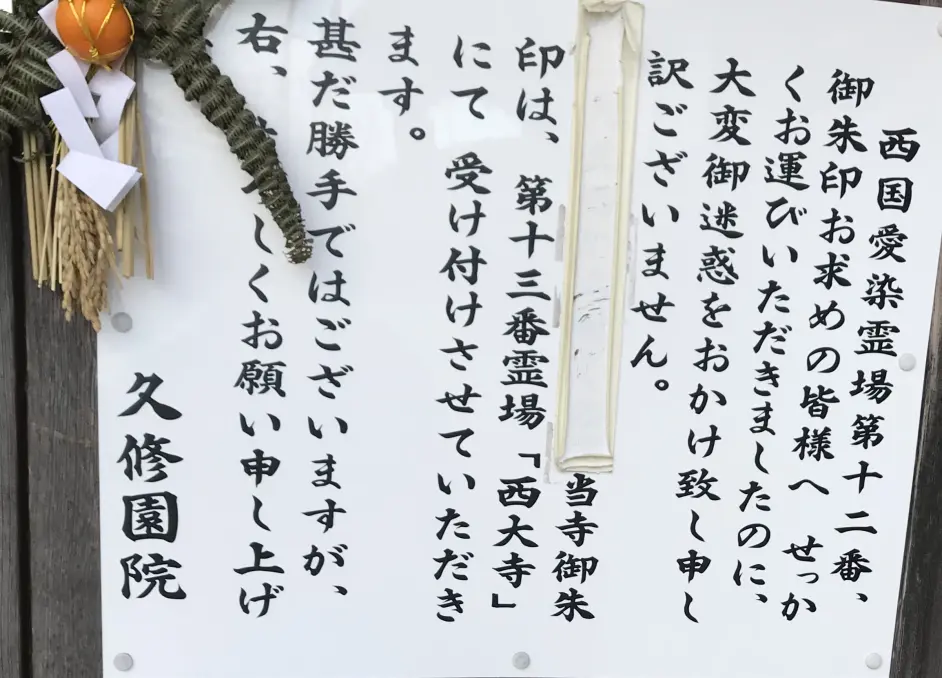 西国愛染霊場第十二番、
御朱印お求めの皆様へ せっか
くお運びいただきましたのに、
大変御迷惑をおかけ致し申し
訳ございません。
当寺御朱
印は、第十三番霊場「西大寺」
にて 受け付けさせていただき
ます。
甚だ勝手ではございますが、
右、しくお願い申し上げ
久修園院